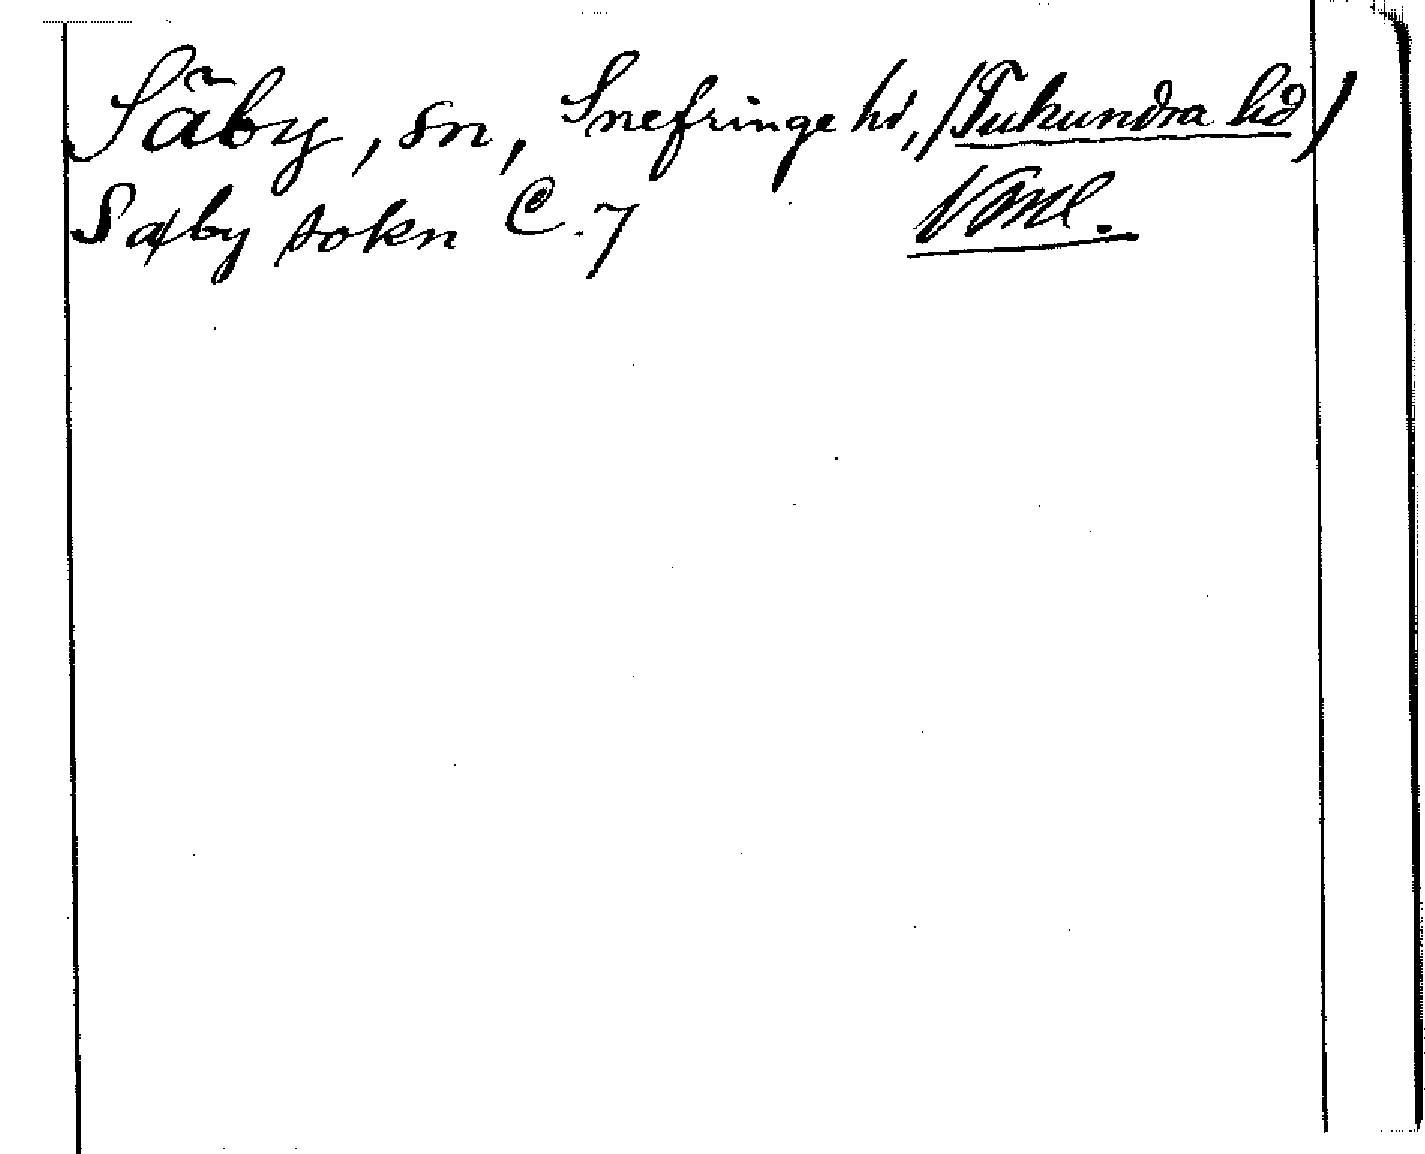 Säby, sn, Snefringe hd, (Tuhundra hd)
Sæby sokn C. 7 Vml.